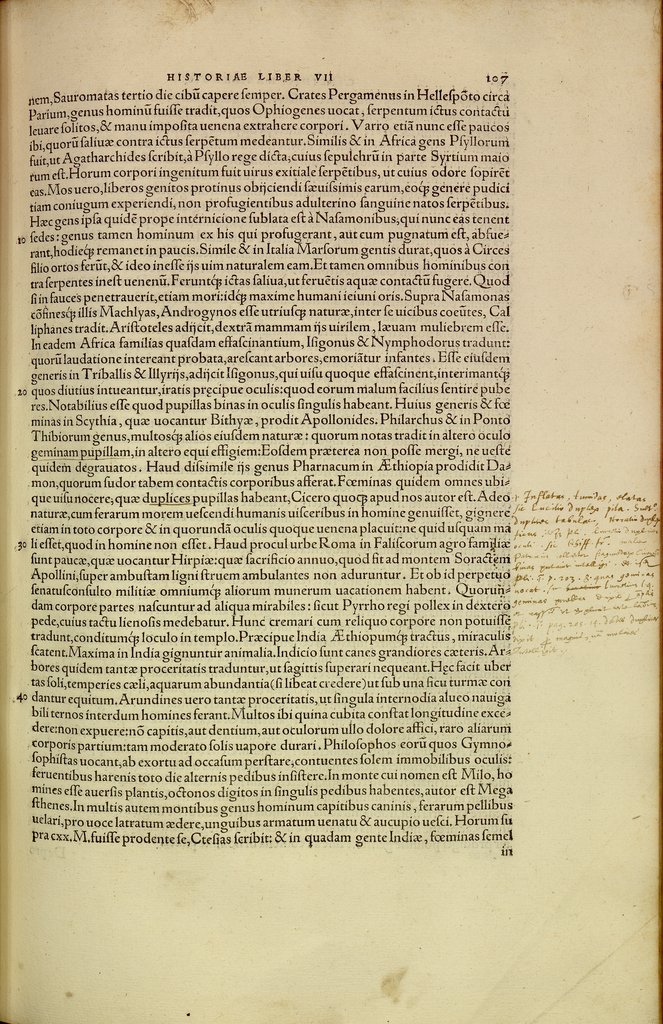 HISTORIAE LIBER VII 107
nem, Sauromatas tertio die cibũ capere ſemper. Crates Pergamenus in Helleſpõto circa
Parium, genus hominũ fuiſſe tradit, quos Ophiogenes uocat, ſerpentum ictus contactu
leuare ſolitos, & manu impoſita uenena extrahere corpori. Varro etiã nunc eſſe paucos
ibi, quorũ ſaliuæ contra ictus ſerpẽtum medeantur. Similis & in Africa gens Pſyllorum
fuit, ut Agatharchides ſcribit, à Pſyllo rege dicta, cuius ſepulchrũ in parte Syrtium maio
rum eſt. Horum corpori ingenitum fuit uirus exitiale ſerpẽtibus, ut cuius odore ſopirẽt
eas. Mos uero, liberos genitos protinus obijciendi ſæuiſsimis earum, eoq́; genere pudici
tiam coniugum experiendi, non profugientibus adulterino ſanguine natos ſerpẽtibus.
Hæc gens ipſa quidẽ prope internicione ſublata eſt à Naſamonibus, qui nunc eas tenent
10 ſedes: genus tamen hominum ex his qui profugerant, aut cum pugnatum eſt, abfue-
rant, hodieq́; remanet in paucis. Simile & in Italia Marſorum gentis durat, quos à Circes
filio ortos ferũt, & ideo ineſſe ijs uim naturalem eam. Et tamen omnibus hominibus con
tra ſerpentes ineſt uenenũ. Feruntq́; ictas ſaliua, ut feruẽtis aquæ contactũ fugere. Quod
ſi in fauces penetrauerit, etiam mori: idq́; maxime humani ieiuni oris. Supra Naſamonas
cõfinesq́; illis Machlyas, Androgynos eſſe utriuſq́; naturæ, inter ſe uicibus coeũtes, Cal
liphanes tradit. Ariſtoteles adijcit, dextrã mammam ijs uirilem, læuam muliebrem eſſe.
In eadem Africa familias quaſdam effaſcinantium, Iſigonus & Nymphodorus tradunt:
quorũ laudatione intereant probata, areſcant arbores, emoriãtur infantes. Eſſe eiuſdem
generis in Triballis & Illyrijs, adijcit Iſigonus, qui uiſu quoque effaſcinent, interimantq́;
20 quos diutius intueantur, iratis pręcipue oculis: quod eorum malum facilius ſentire pube
res. Notabilius eſſe quod pupillas binas in oculis ſingulis habeant. Huius generis & fœ
minas in Scythia, quæ uocantur Bithyæ, prodit Apollonides. Philarchus & in Ponto
Thibiorum genus, multosq́; alios eiuſdem naturæ: quorum notas tradit in altero oculo
geminam pupillam, in altero equi effigiem: Eoſdem præterea non poſſe mergi, ne ueſte
quidem degrauatos. Haud diſsimile ijs genus Pharnacum in Æthiopia prodidit Da-
mon, quorum ſudor tabem contactis corporibus afferat. Fœminas quidem omnes ubi-
que uiſu nocere, quæ duplices pupillas habeant, Cicero quoq́; apud nos autor eſt. Adeo
naturæ, cum ferarum morem ueſcendi humanis uiſceribus in homine genuiſſet, gignere
etiam in toto corpore & in quorundã oculis quoque uenena placuit: ne quid uſquam ma
30 li eſſet, quod in homine non eſſet. Haud procul urbe Roma in Faliſcorum agro familiæ
ſunt paucæ, quæ uocantur Hirpiæ: quæ ſacrificio annuo, quod fit ad montem Soractem
Apollini, ſuper ambuſtam ligni ſtruem ambulantes non aduruntur. Et ob id perpetuo
ſenatusconſulto militiæ omniumq́; aliorum munerum uacationem habent. Quorun-
dam corpore partes naſcuntur ad aliqua mirabiles: ſicut Pyrrho regi pollex in dextero
pede, cuius tactu lienoſis medebatur. Hunc cremari cum reliquo corpore non potuiſſe
tradunt, conditumq́; loculo in templo. Præcipue India Æthiopumq́; tractus, miraculis
ſcatent. Maxima in India gignuntur animalia. Indicio ſunt canes grandiores cæteris. Ar-
bores quidem tantæ proceritatis traduntur, ut ſagittis ſuperari nequeant. Hęc facit uber
tas ſoli, temperies cæli, aquarum abundantia (ſi libeat credere) ut ſub una ficu turmæ con
40 dantur equitum. Arundines uero tantæ proceritatis, ut ſingula internodia alueo nauiga
bili ternos interdum homines ferant. Multos ibi quina cubita conſtat longitudine exce-
dere: non expuere: nõ capitis, aut dentium, aut oculorum ullo dolore affici, raro aliarum
corporis partium: tam moderato ſolis uapore durari. Philoſophos eorũ quos Gymno-
ſophiſtas uocant, ab exortu ad occaſum perſtare, contuentes ſolem immobilibus oculis:
feruentibus harenis toto die alternis pedibus inſiſtere. In monte cui nomen eſt Milo, ho
mines eſſe auerſis plantis, octonos digitos in ſingulis pedibus habentes, autor eſt Mega
ſthenes. In multis autem montibus genus hominum capitibus caninis, ferarum pellibus
uelari, pro uoce latratum ædere, unguibus armatum uenatu & aucupio ueſci. Horum ſu
pra cxx. M. fuiſſe prodente ſe, Cteſias ſcribit: & in quadam gente Indiæ, fœminas ſemel
in
Inflatas, tumidas, elatas